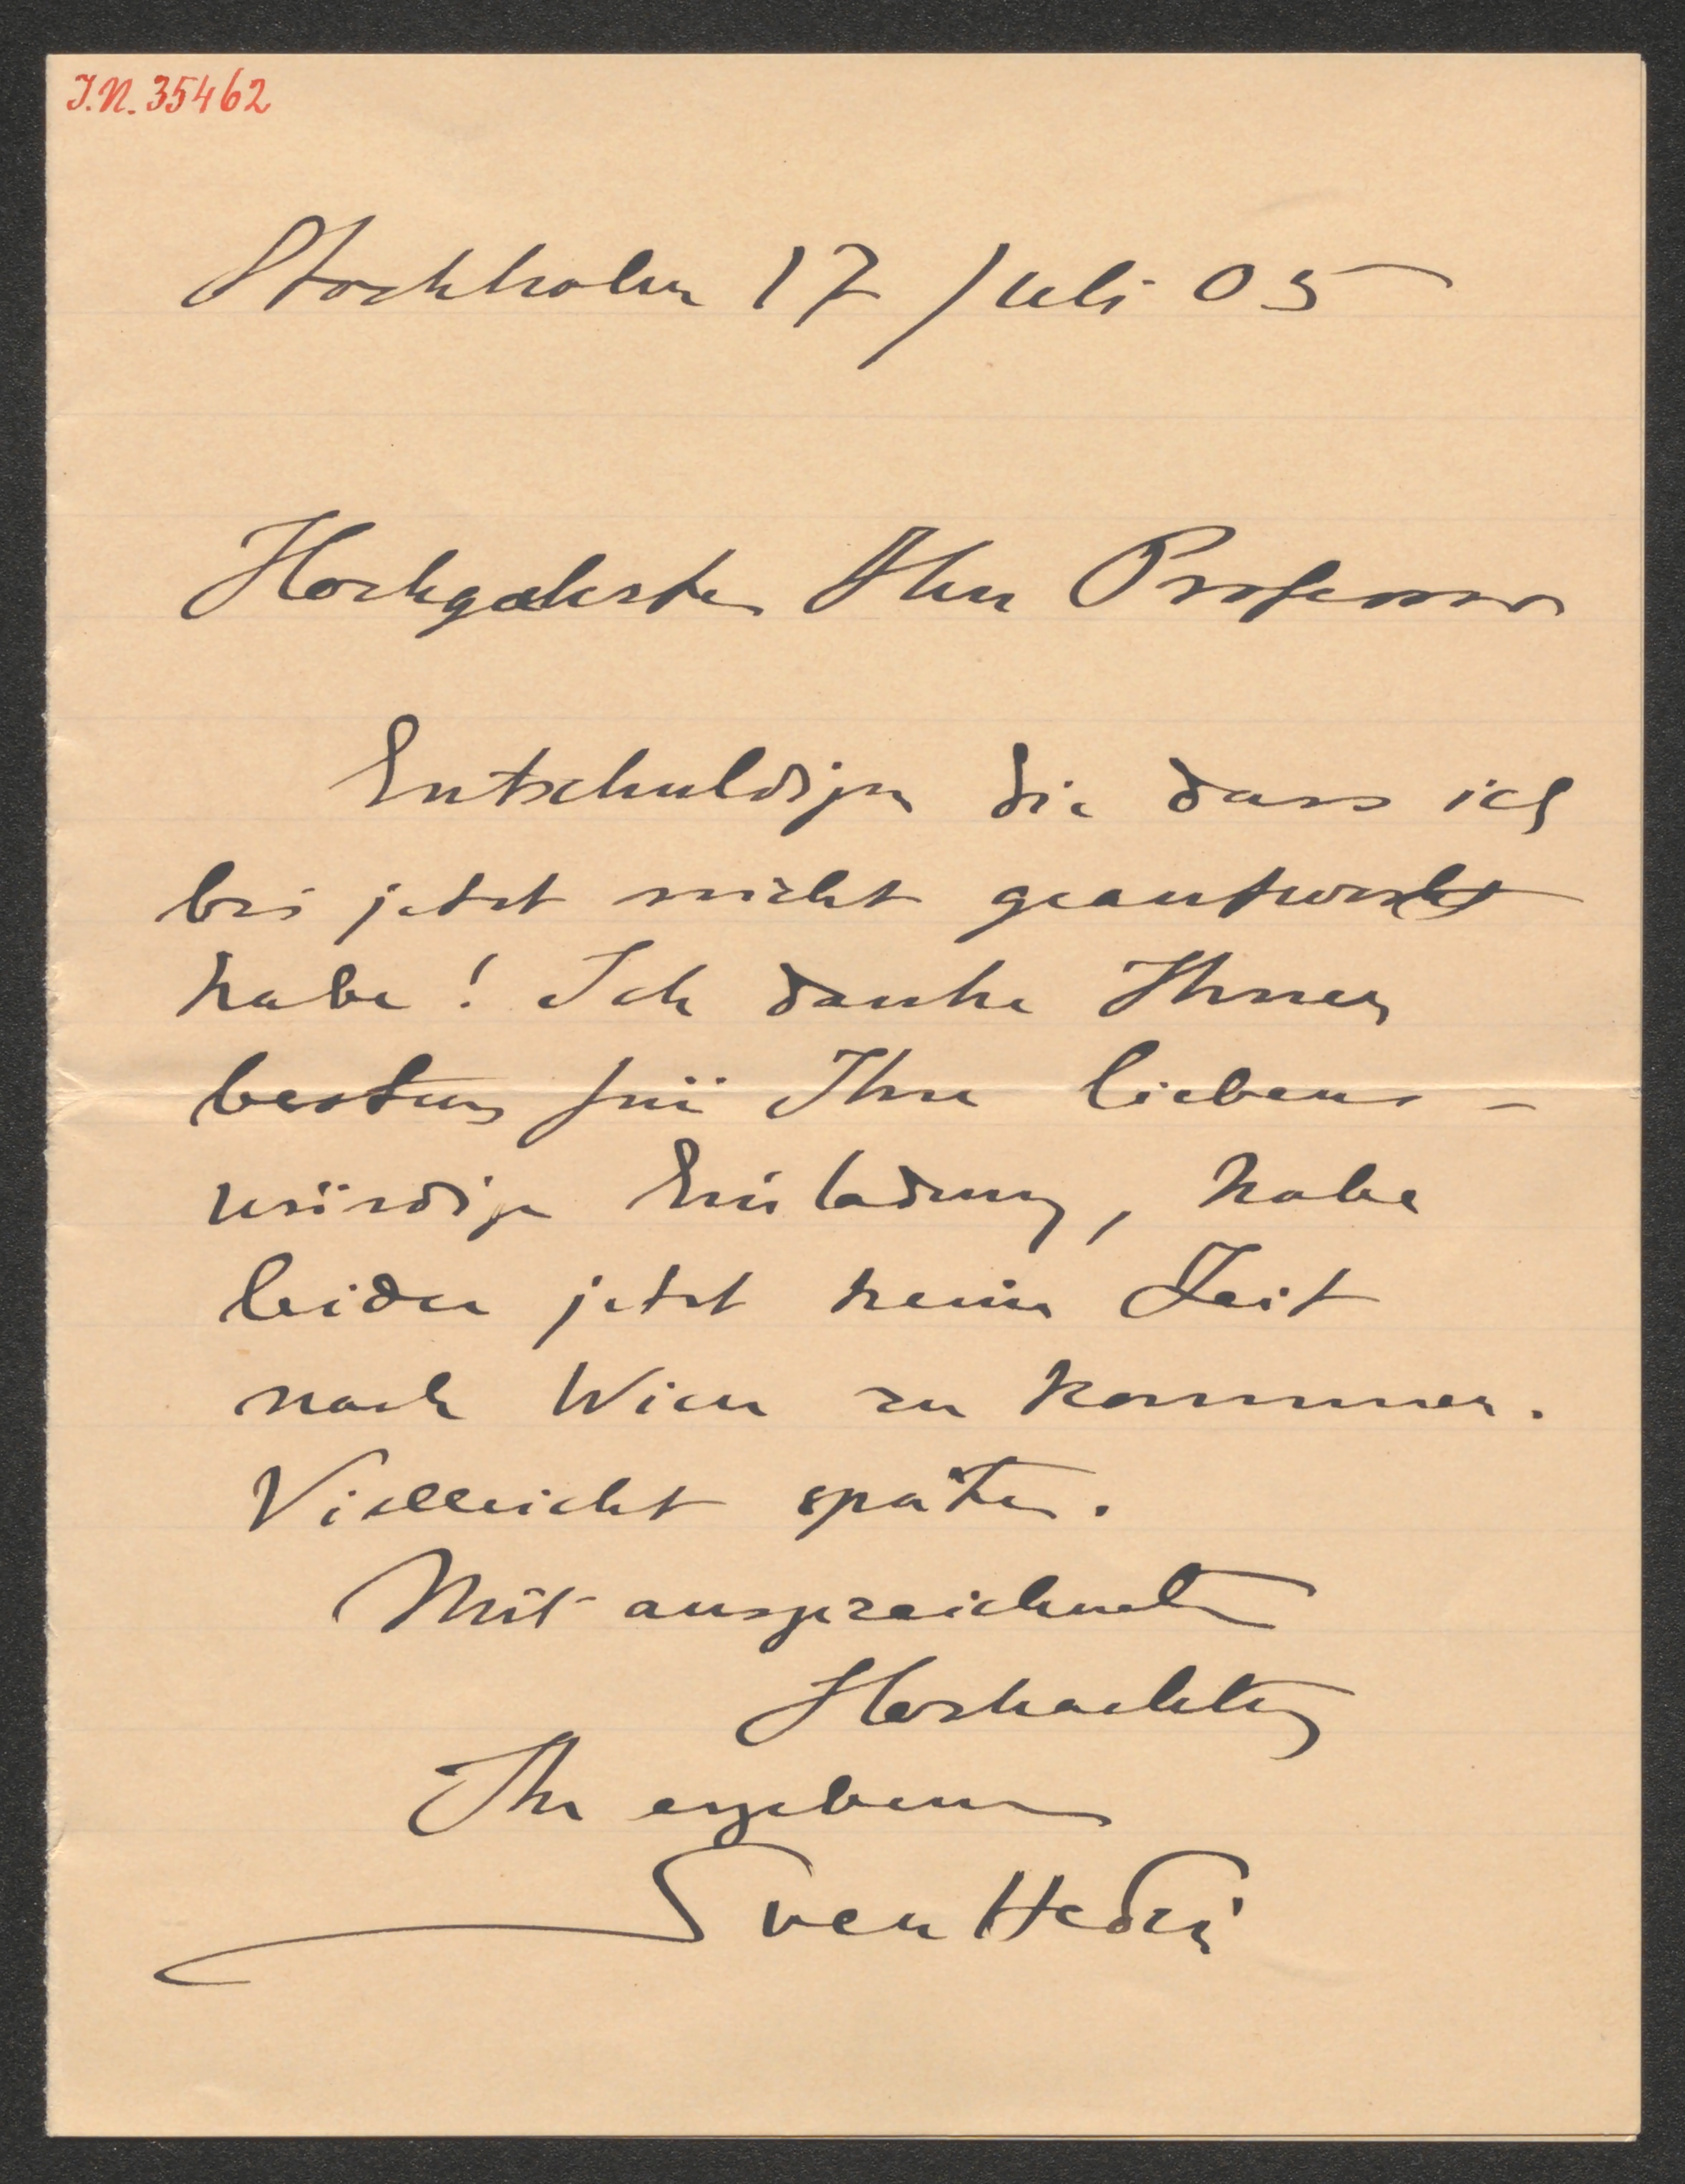 I.N. 35462
Stockholm 17 Juli 05
Hochgeehrter Herr Professor
Entschuldigen Sie dass ich
bis jetzt nicht geantwortet
habe! Ich danke Ihnen
bestens für Ihre liebens-
würdige Einladung, habe
leider jetzt keine Zeit
nach Wien zu kommen.
Vielleicht später.
Mit ausgezeichneter
Hochachtung
Ihr ergebener
Sven Hedin